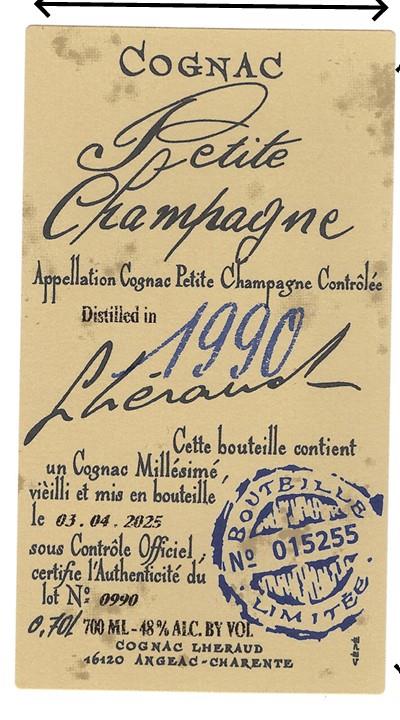 COGNAC
Petite
Champagne
Appellation Cognac Petite Champagne Contrôlée
Distilled in 1990
Lhéraud
Cette bouteille contient
un Cognac Millésimé,
vièilli et mis en bouteille,
le 03.04.2025
sous Contrôle Officiel,
certifie l'Authenticité du
lot Nº 0990
BOUTEILLE
Nº 015255
LIMITÉE
0,70l 700 ML - 48% ALC. BY VOL
COGNAC LHERAUD
16120 ANGEAC-CHARENTE
CÉPÉ